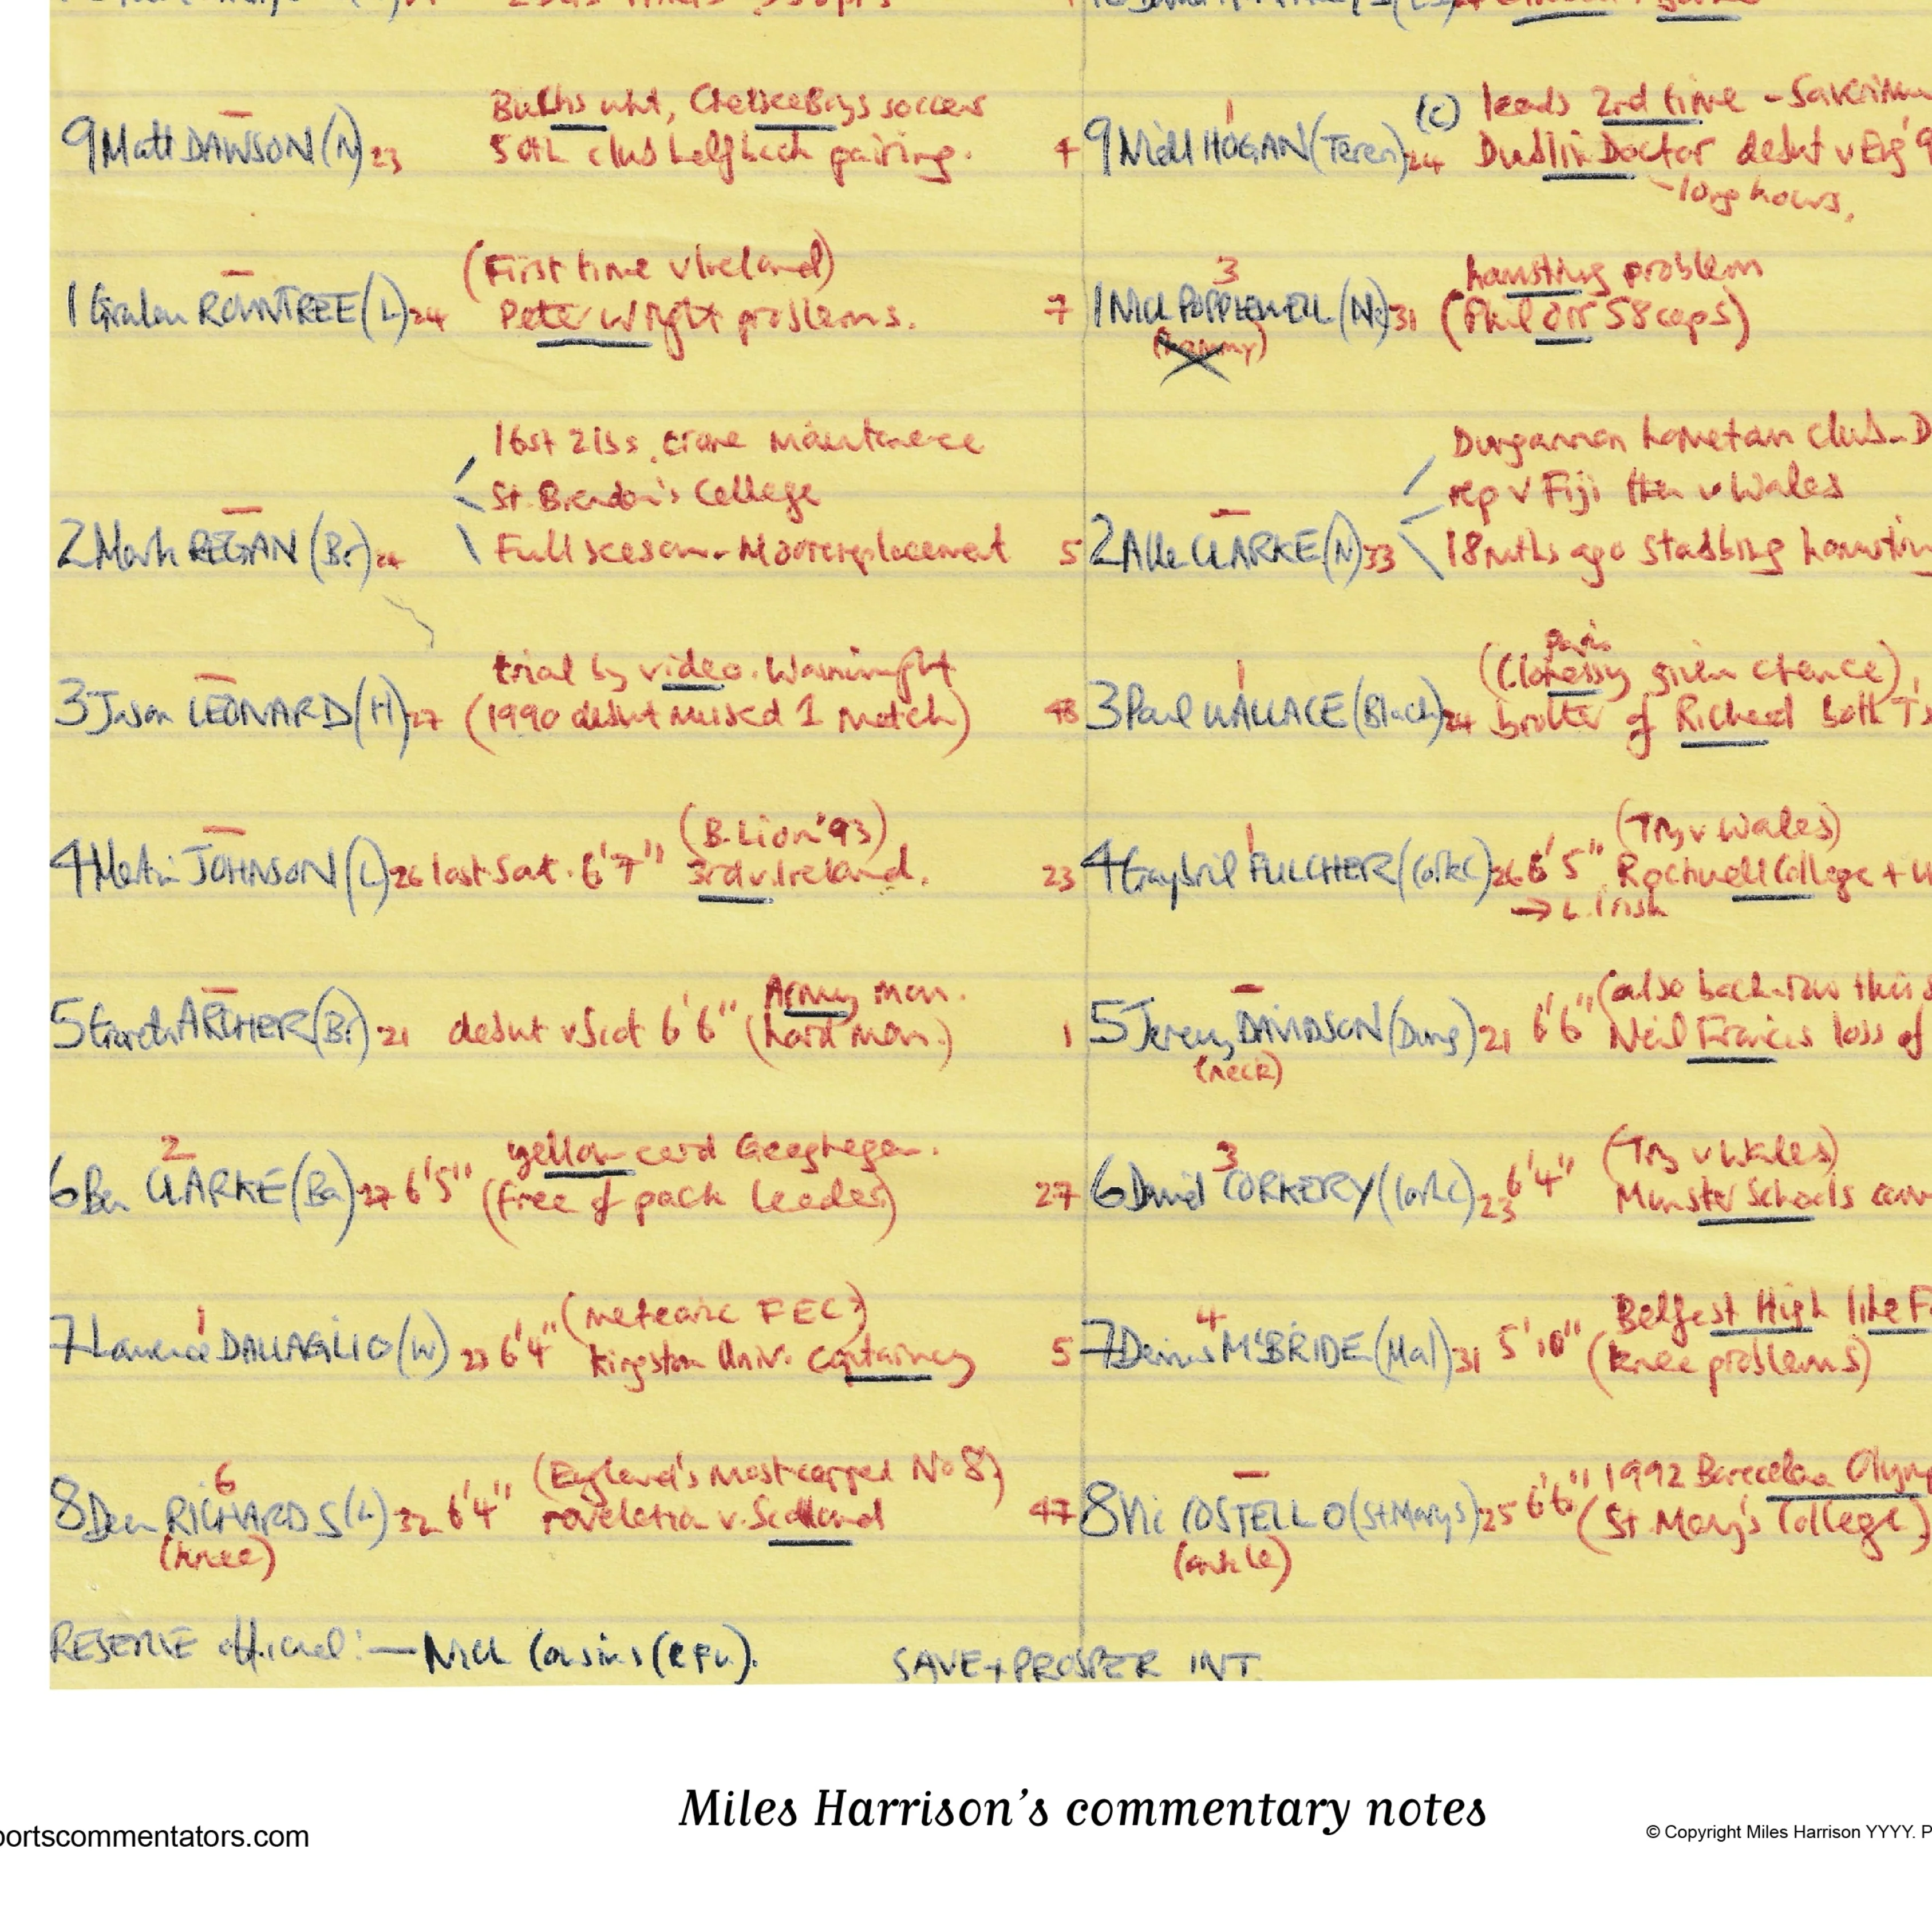 Bucks Uni, Chelsea Boys soccer
9 Matt DAWSON (N) 23 50th club half back pairing. 4
9 Niall HOGAN (Teren) 24 (c) leads 2nd time -
Dublin Doctor debut v Eng '9
- long hours.
(First time v Ireland)
1 Graham ROWNTREE (L) 24 Peter Wright problems. 7
3 hamstring problem
1 Nick POPPLEWELL (Nc) 31 (Phil Orr 58 caps)
(hammy)
16st 2lbs. crane maintenance
St. Brendan's College
2 Mark REGAN (Br) 24 Full season - Moore replacement 5
Dungannon hometown club - D
rep v Fiji then v Wales
2 Allen CLARKE (N) 33 18 mths ago stabbing hamstrin
trial by video. Wainwright
3 Jason LEONARD (H) 27 (1990 debut missed 1 match) 48
(Clohessy given chance)
3 Paul WALLACE (Black) 24 brother of Richard both
(B. Lion '93)
4 Martin JOHNSON (L) 26 last Sat. 6'7" 3rd v. Ireland. 23
(Try v Wales)
4 Gaybriel FULCHER (CorkC) 26 6'5" Rockwell College +
→ L. Irish
Army man.
5 Gareth ARCHER (Br) 21 debut v Scot 6'6" (hard man.) 1
(also back-row this s
5 Jeremy DAVIDSON (Dung) 21 6'6" Neil Francis loss of
(neck)
2 yellow card Geoghegan.
6 Ben CLARKE (Ba) 27 6'5" (free of pack leader) 27
3 (Try v Wales)
6 David CORKERY (CorkC) 23 6'4" Munster Schools
1 (meteoric FEC?)
7 Lawrence DALLAGLIO (W) 23 6'4" Kingston Univ. Captaincy 5
4 Belfast High like F
7 Denis McBRIDE (Mal) 31 5'10" (knee problems)
6 (England's most capped No 8)
8 Dean RICHARDS (L) 32 6'4" revelation v. Scotland 47
(knee)
1992 Barcelona Olymp
8 Vic COSTELLO (St Marys) 25 6'6" (St. Mary's College)
(ankle)
RESERVE official: - Nick Cousins (RFU).
SAVE + PROSPER INT.
Miles Harrison's commentary notes
portscommentators.com
© Copyright Miles Harrison YYYY. P